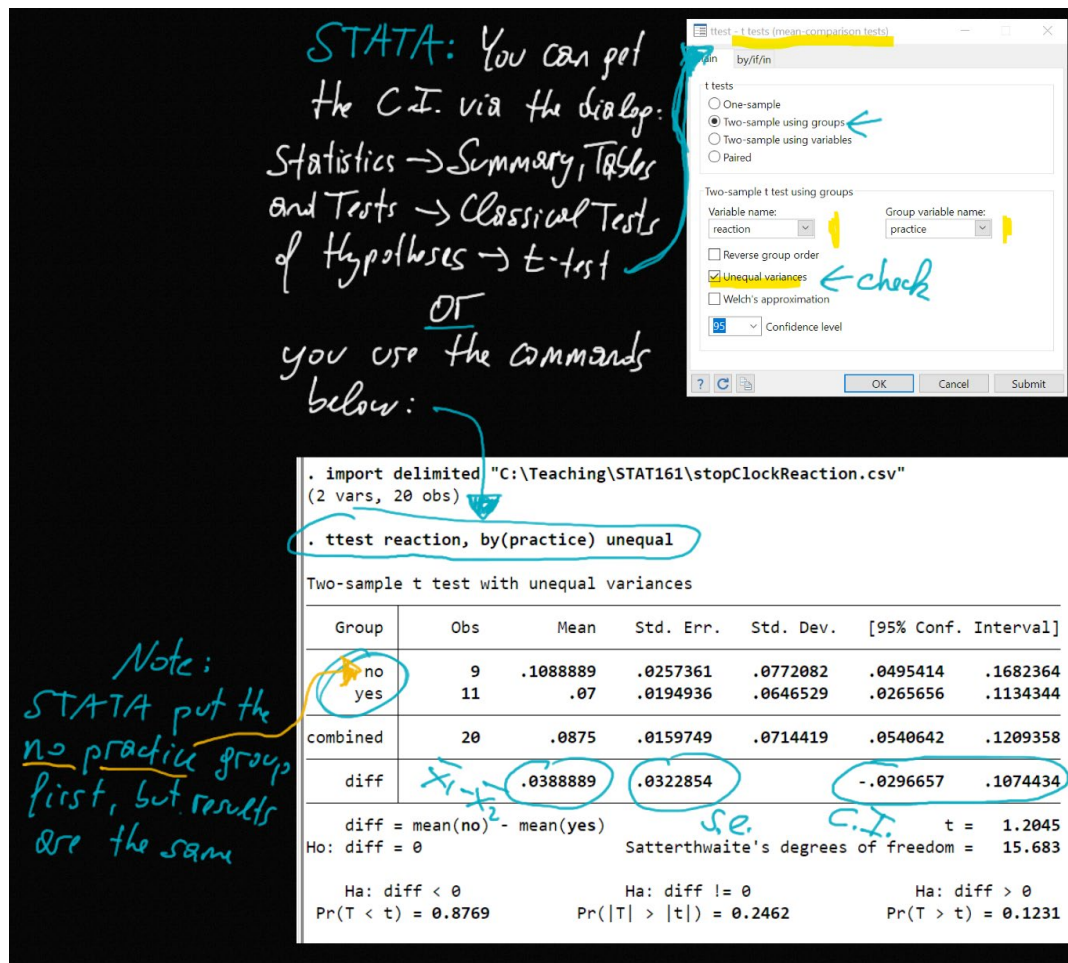 STATA: You can get
the C.I. via the dialog:
Statistics → Summary, Tables
and Tests → Classical Tests
of Hypotheses → t-test
or
you use the commands
below:
ttest - t tests (mean-comparison tests)
ain by/if/in
t tests
One-sample
Two-sample using groups
Two-sample using variables
Paired
Two-sample t test using groups
Variable name: Group variable name:
reaction practice
Reverse group order
Unequal variances ← check
Welch's approximation
95 Confidence level
? OK Cancel Submit
. import delimited "C:\Teaching\STAT161\stopClockReaction.csv"
(2 vars, 20 obs)
. ttest reaction, by(practice) unequal
Two-sample t test with unequal variances
Group Obs Mean Std. Err. Std. Dev. [95% Conf. Interval]
no 9 .1088889 .0257361 .0772082 .0495414 .1682364
yes 11 .07 .0194936 .0646529 .0265656 .1134344
combined 20 .0875 .0159749 .0714419 .0540642 .1209358
diff x̄₁-x̄₂ .0388889 .0322854 -.0296657 .1074434
s.e. C.I.
diff = mean(no) - mean(yes) t = 1.2045
Ho: diff = 0 Satterthwaite's degrees of freedom = 15.683
Ha: diff < 0 Ha: diff != 0 Ha: diff > 0
Pr(T < t) = 0.8769 Pr(|T| > |t|) = 0.2462 Pr(T > t) = 0.1231
Note:
STATA put the
no practice group
first, but results
are the same